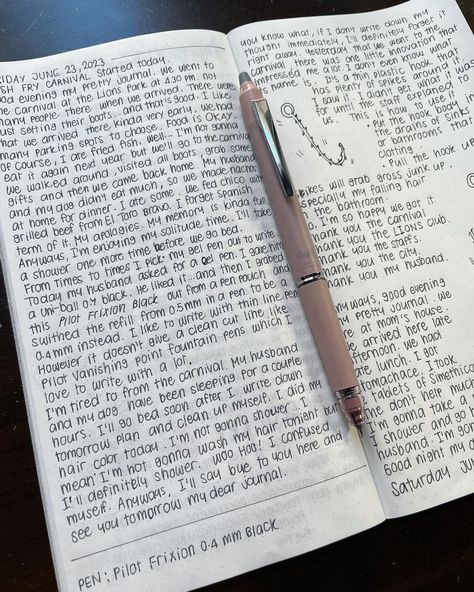 FRIDAY JUNE 23, 2023
FISH FRY CARNIVAL started today.
Good evening my pretty journal. We went to
the carnival at the Lions Park at 4:30 pm. not
many people there when we arrived. There were
just setting their boots.. And that's good. I like
that we arrived there kinda very early, we had
many parking spots to choose. Food is OKAY
of course, I ate fried fish. Well... I'm not gonna
eat it again next year but we'll go to the carnival
we walked around, visited all boots, grab some
gifts and then we came back home. My husband
and my dog didn't eat much, so we made nachos
at home for dinner. I ate some. We fed chico with
grilled beef from El Toro Brand. I forget spanish
term of it. My apologies. My memory is kinda full
Anyways, I'm enjoying my solitude time. I'll take
a shower one more time before we go bed.
From times to times I pick my gel pen out to write
Today my husband asked for a gel pen. I gave him
a uni-ball 0.7 black. He liked it...and then I grabbed
this Pilot Frixion Black out from a pen pouch and
swithed the refill from 0.5mm in a pen to be a
0.4 mm instead. I like to write with thin line pen
However it doesn't give a clean cut line like
Pilot vanishing point fountain pens which I
love to write with a lot.
I'm tired from the carnival. My husband
and my dog have been sleeping for a couple
hours. I'll go bed soon after I write down
tomorrow plan and clean up myself. I did my
hair color today. I'm not gonna shower.. I
mean I'm not gonna wash my hair tonight but
I'll definitely shower. Woo Hoo! I confused
myself. Anyways, I'll say bye to you here and
see you tomorrow my dear journal.
PEN: Pilot Frixion 0.4 mm Black
you know what, if I don't write down my
thought immediately, I'll definitely forget it
right away. Yesterday that we went to the
carnival, there was one little innovation that
impressed me a lot. I don't even know what
its name is. It's a thin plastic hook that
has plenty of spikes around it
I saw it. I didn't get what it was
for until the staff explained
us. This is how to use it
Pull the hook up
the drains of sinks
or bathrooms that
clotting..
. pull the hook up
spikes will grab gross junk up.
especially my falling hair
in the bathroom.
I'm so happy we got it.
Thank you the Carnival.
Thank you the LIONS Club.
Thank you the staffs.
Thank you the city.
Thank you my husband.
Anyways, good evening
my pretty journal. We
are at mom's house.
we arrived here late
afternoon. we had
late lunch. I got
stomachace. I took
tablets of Simethicone
don't help much
I'm gonna take a
shower and go
husband. I'm gonna
Good night my
Saturday